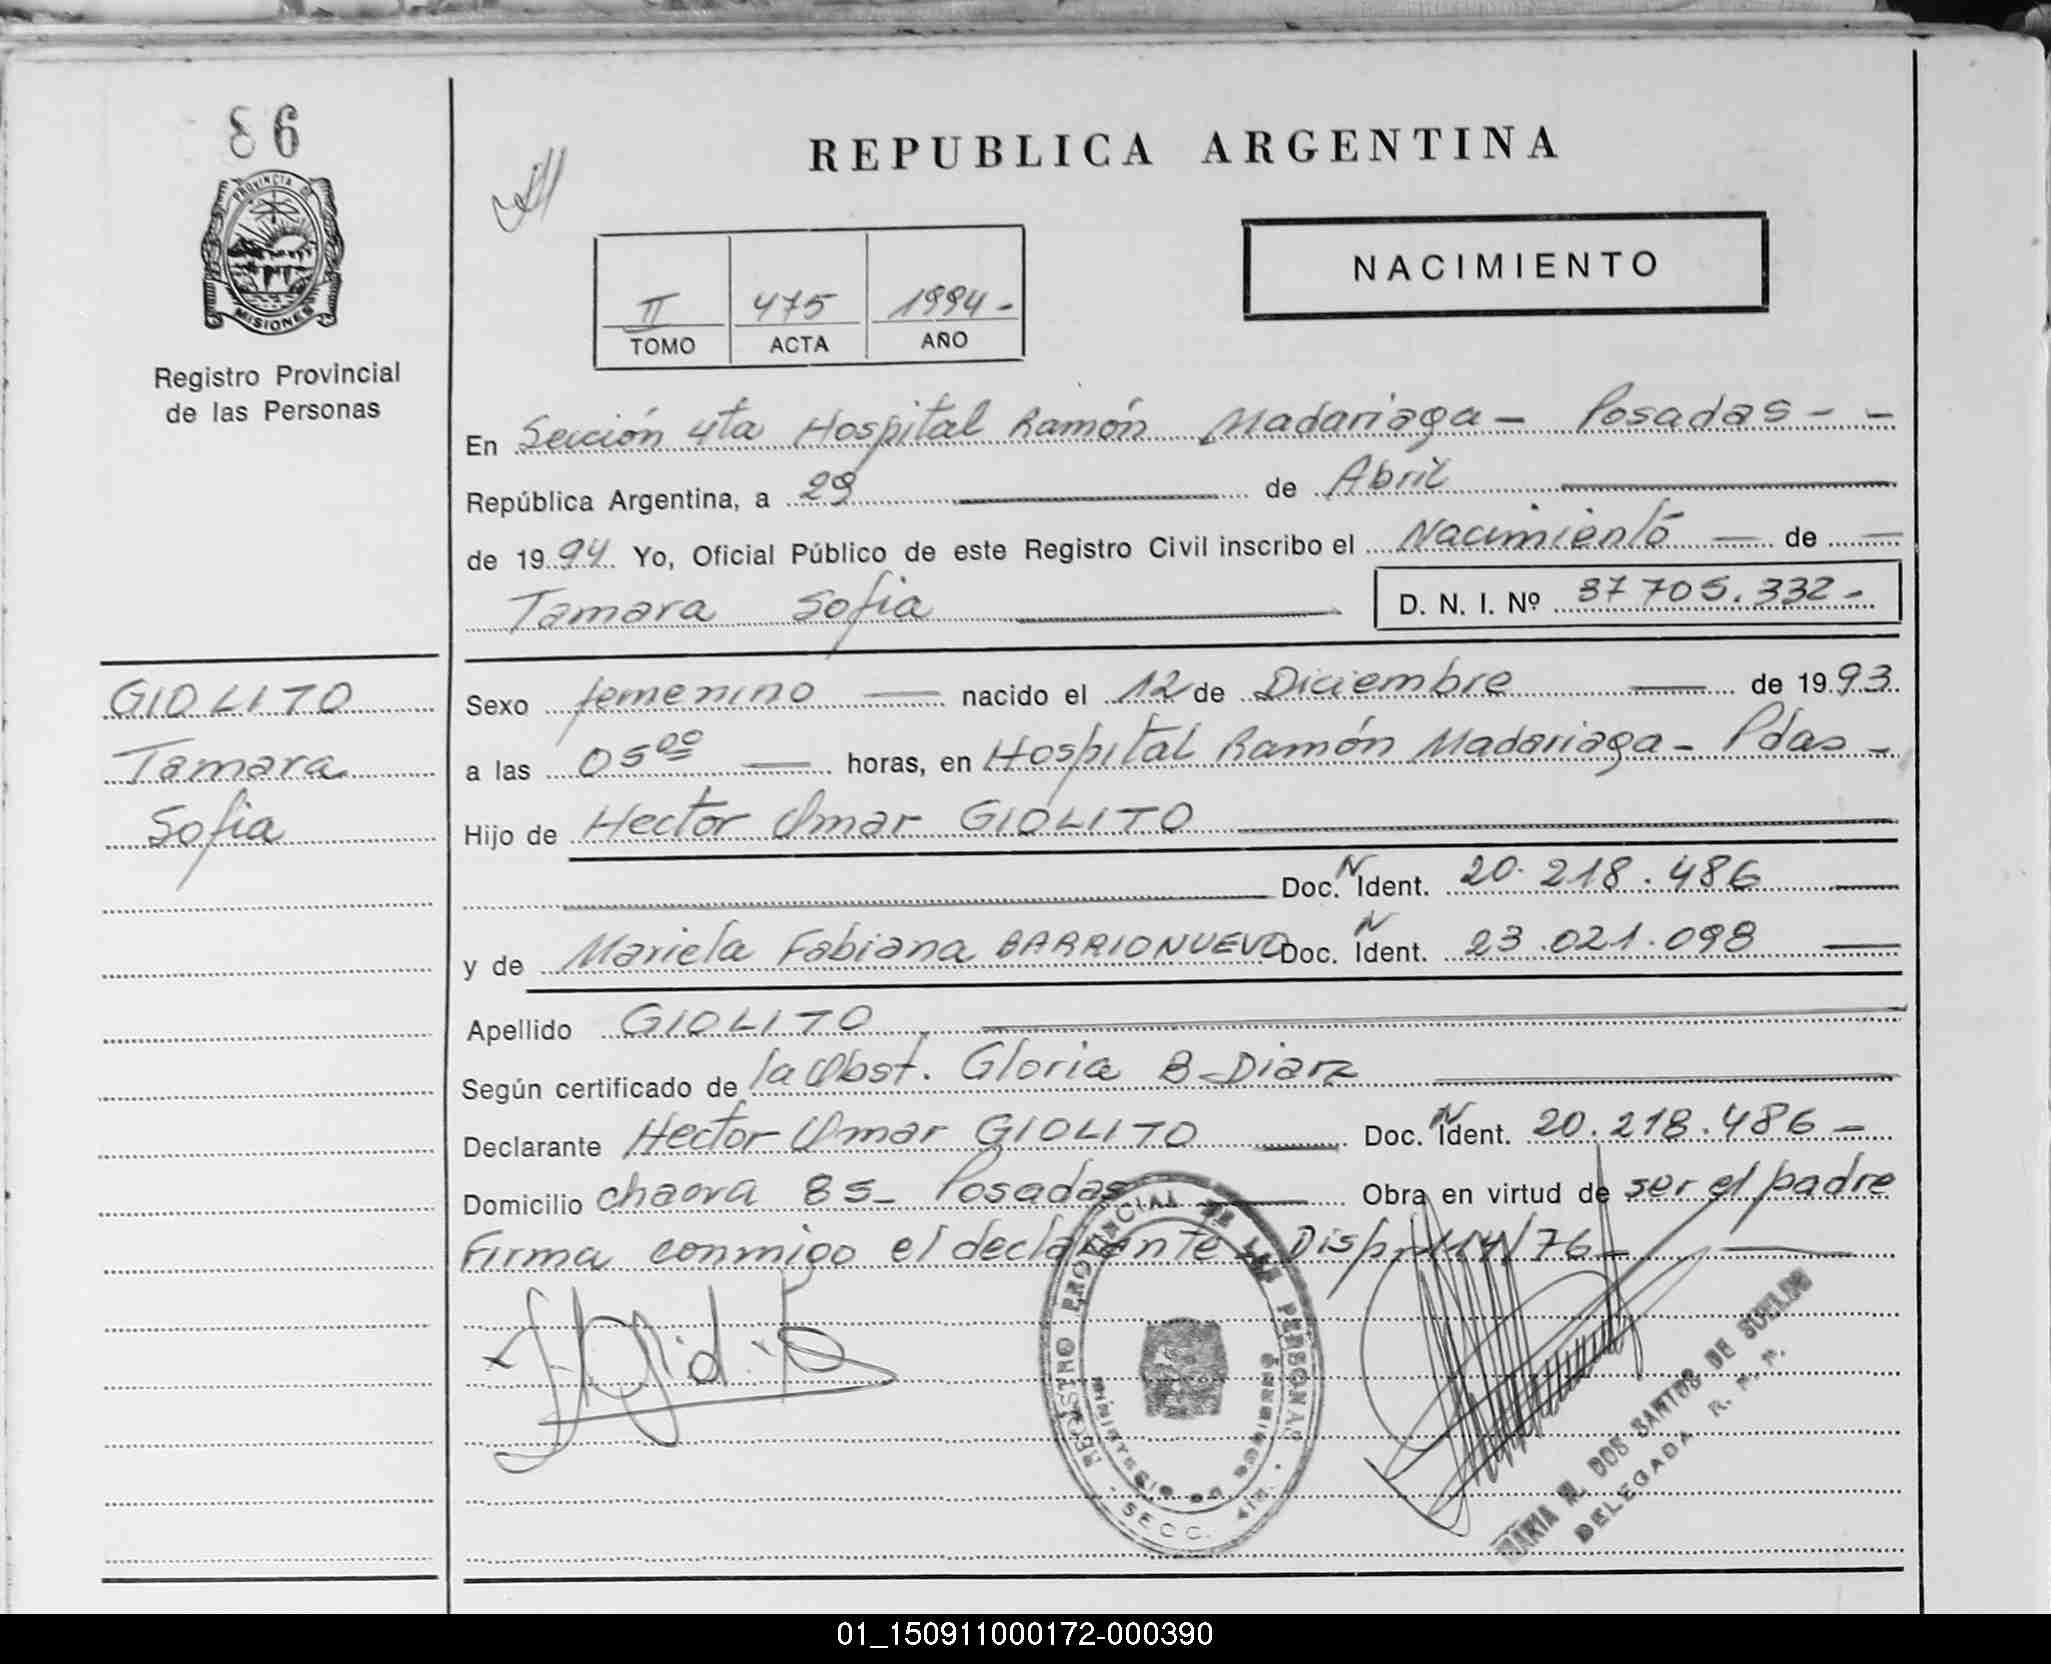 86
PROVINCIA DE
MISIONES
Registro Provincial
de las Personas
REPUBLICA ARGENTINA
NACIMIENTO
II 475 1994-
TOMO ACTA AÑO
En Sección 4ta Hospital Ramón Madariaga - Posadas - -
República Argentina, a 29 de Abril
de 1994 Yo, Oficial Público de este Registro Civil inscribo el Nacimiento de
Tamara Sofia D. N. I. Nº 37 705.332-
GIOLITO
Tamara
Sofia
Sexo femenino nacido el 12 de Diciembre de 1993
a las 05 00 horas, en Hospital Ramón Madariaga - Pdas -
Hijo de Hector Omar GIOLITO
Doc. N Ident. 20.218.486
y de Mariela Fabiana BARRIONUEVO Doc. N Ident. 23.021.098
Apellido GIOLITO
Según certificado de la Obst. Gloria B. Diarz
Declarante Hector Omar GIOLITO Doc. N Ident. 20.218.486 -
Domicilio chacra 85 - Posadas Obra en virtud de ser el padre
Firma conmigo el declarante - Disp. 114/76 -
REGISTRO PROVINCIAL DE LAS PERSONAS
SECC. 4ta.
MARIA N. DOS SANTOS DE
DELEGADA R. P. P.
01_150911000172-000390